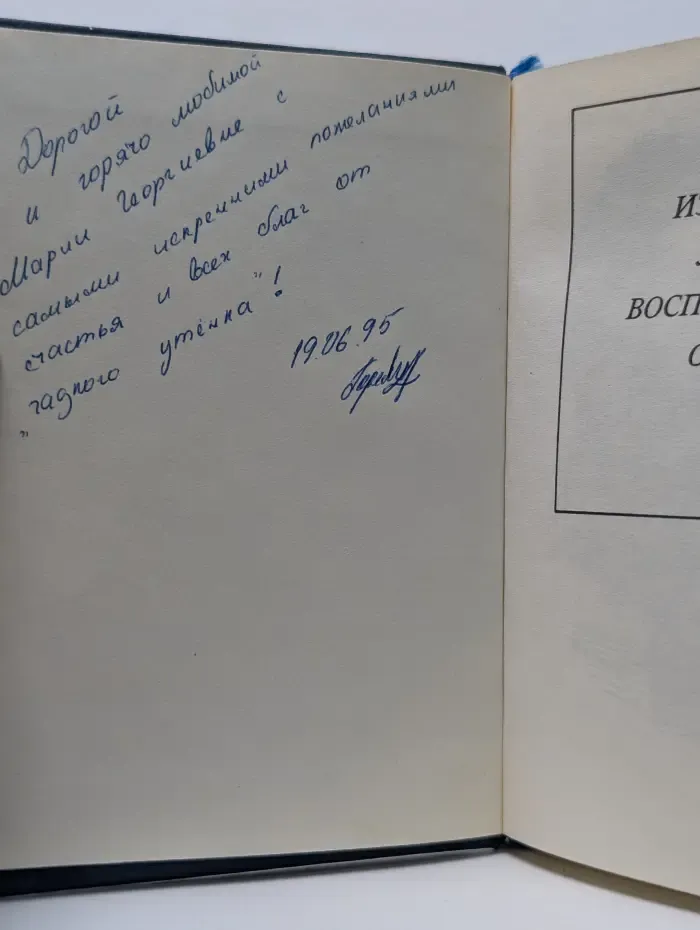 Дорогой
и горячо любимой
Марии Георгиевне с
самыми искренними пожеланиями
счастья и всех благ от
"гадкого утёнка"!
19.06.95
ИЗ
ВОСП